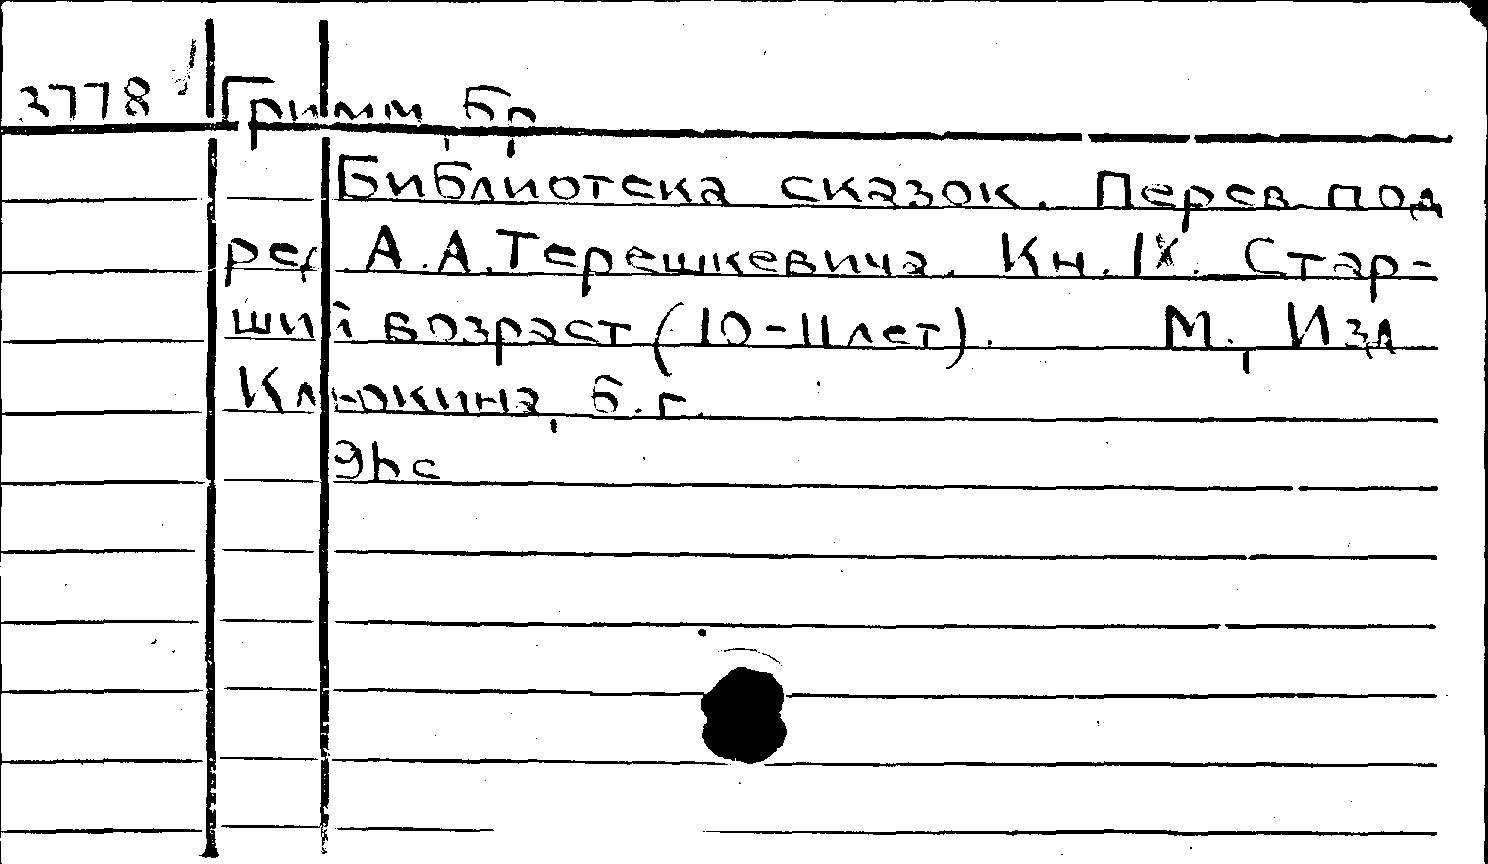 3778 Гримм, Бр.
Библиотека сказок. Перев. под
ред. А.А.Терешкевича. Кн. IX. Стар-
ший возраст (10-11 лет). М., Изд.
Клюкина, б.г.
9hc